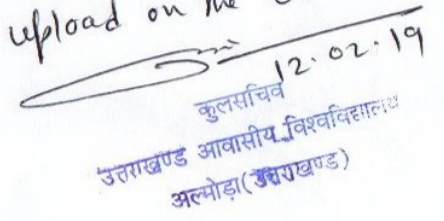 upload on the
12.02.19
कुलसचिव
उत्तराखण्ड आवासीय विश्वविद्यालय
अल्मोड़ा (उत्तराखण्ड)